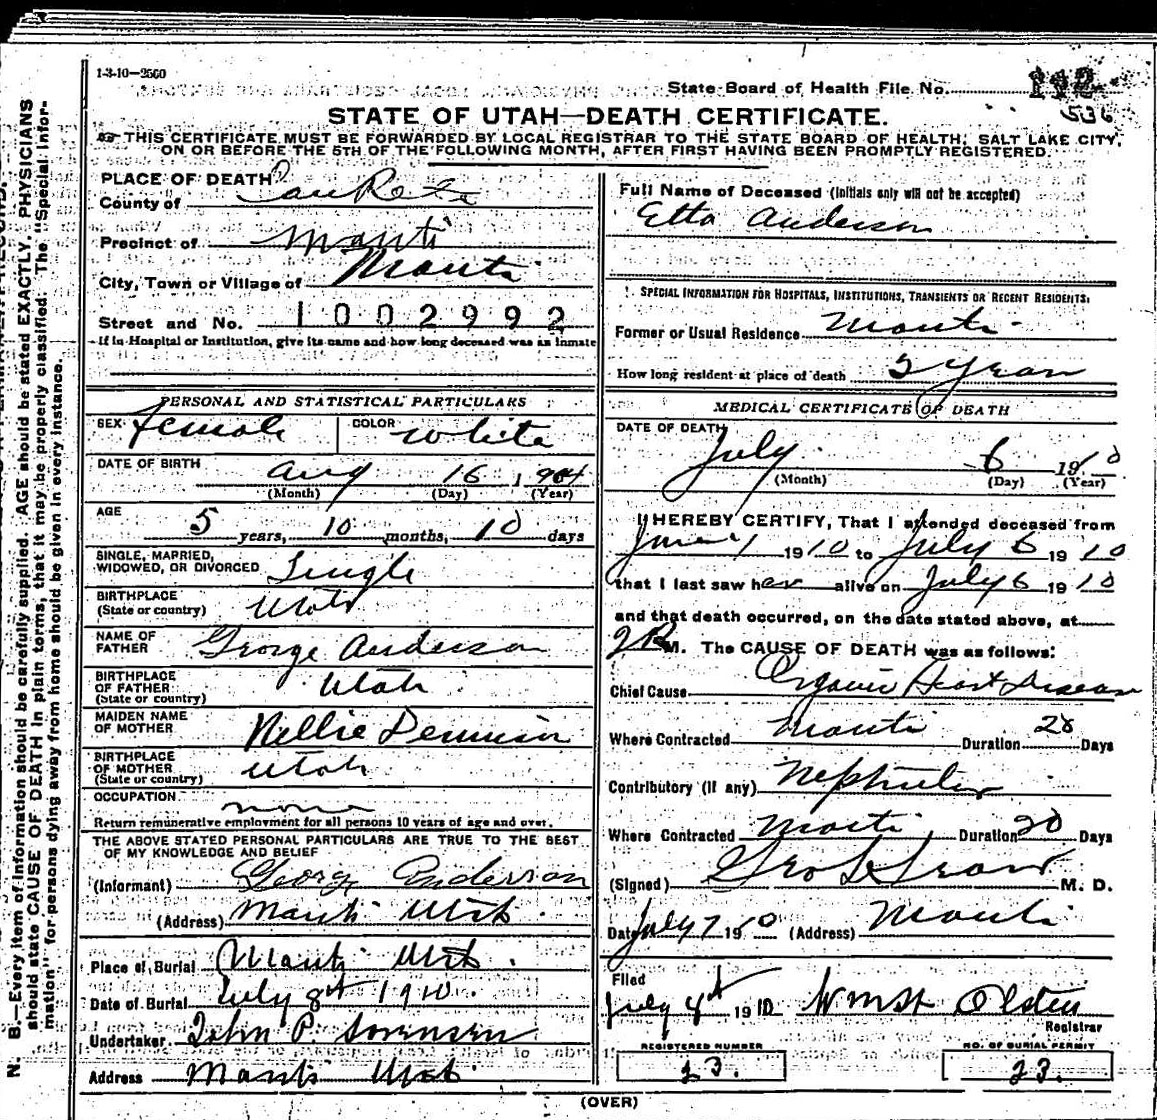 1-3-10—2500
State Board of Health File No. 112
536
STATE OF UTAH—DEATH CERTIFICATE.
THIS CERTIFICATE MUST BE FORWARDED BY LOCAL REGISTRAR TO THE STATE BOARD OF HEALTH, SALT LAKE CITY,
ON OR BEFORE THE 5TH OF THE FOLLOWING MONTH, AFTER FIRST HAVING BEEN PROMPTLY REGISTERED.
PLACE OF DEATH
County of SanPete
Precinct of Manti
City, Town or Village of Manti
Street and No. 1002992
If in Hospital or Institution, give its name and how long deceased was an inmate
PERSONAL AND STATISTICAL PARTICULARS
SEX female COLOR white
DATE OF BIRTH Aug 16, 1904
(Month) (Day) (Year)
AGE 5 years, 10 months, 10 days
SINGLE, MARRIED,
WIDOWED, OR DIVORCED Single
BIRTHPLACE
(State or country) Utah
NAME OF
FATHER George Anderson
BIRTHPLACE
OF FATHER
(State or country) Utah
MAIDEN NAME
OF MOTHER Nellie
BIRTHPLACE
OF MOTHER
(State or country) Utah
OCCUPATION none
Return remunerative employment for all persons 10 years of age and over.
THE ABOVE STATED PERSONAL PARTICULARS ARE TRUE TO THE BEST
OF MY KNOWLEDGE AND BELIEF
(Informant) George Anderson
(Address) Manti Utah.
Place of Burial Manti Utah.
Date of Burial July 8th 1910.
Undertaker John P. Sorensen
Address Manti Utah.
Full Name of Deceased (Initials only will not be accepted)
Etta Anderson
SPECIAL INFORMATION FOR HOSPITALS, INSTITUTIONS, TRANSIENTS OR RECENT RESIDENTS:
Former or Usual Residence Manti
How long resident at place of death 5 Years
MEDICAL CERTIFICATE OF DEATH
DATE OF DEATH July 6 1910
(Month) (Day) (Year)
I HEREBY CERTIFY, That I attended deceased from
June 1 1910 to July 6 1910
that I last saw her alive on July 6 1910
and that death occurred, on the date stated above, at
2 P M. The CAUSE OF DEATH was as follows:
Chief Cause Organic Heart Disease
Where Contracted Manti Duration 20 Days
Contributory (if any) Nephritis
Where Contracted Manti, Duration 20 Days
(Signed) Geo M. D.
Date July 7 1910 (Address) Manti
Filed
July 1910 Wm Olsten
Registrar
REGISTERED NUMBER
23.
NO. OF BURIAL PERMIT
23.
(OVER)
N. B.—Every item of information should be carefully supplied. AGE should be stated EXACTLY. PHYSICIANS
should state CAUSE OF DEATH in plain terms, that it may be properly classified. The "Special Infor-
mation" for persons dying away from home should be given in every instance.